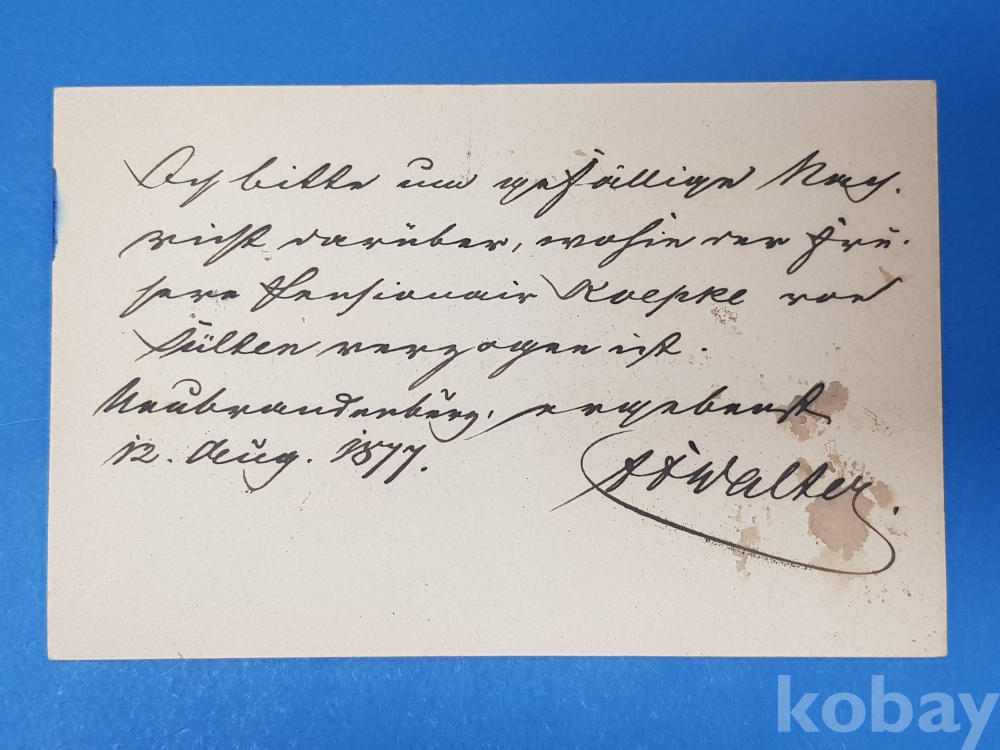 Ich bitte um gefällige Nach-
richt darüber, wohin der frü-
here Pensionair Koepke von
Sülten verzogen ist.
Neubrandenburg, ergebenst
12. Aug. 1877.
Walter.
kobay